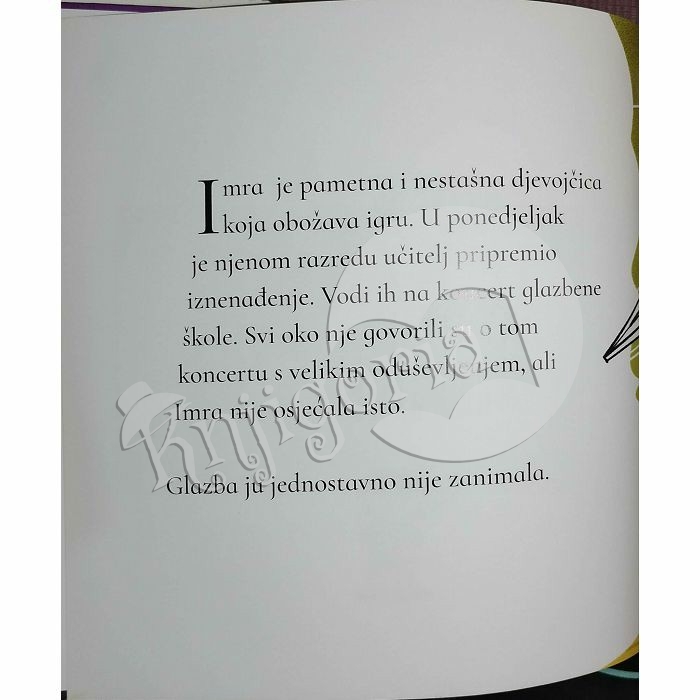 Imra je pametna i nestašna djevojčica
koja obožava igru. U ponedjeljak
je njenom razredu učitelj pripremio
iznenađenje. Vodi ih na koncert glazbene
škole. Svi oko nje govorili su o tom
koncertu s velikim oduševljenjem, ali
Imra nije osjećala isto.
Glazba ju jednostavno nije zanimala.
Knjigoris